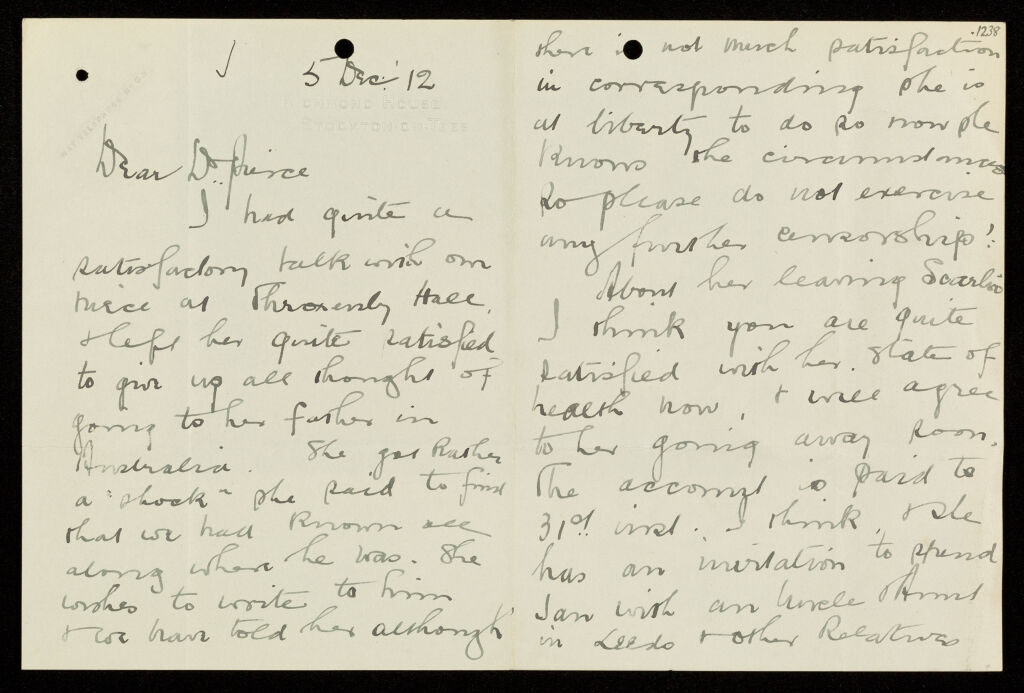 5 Dec: '12
RICHMOND HOUSE
STOCKTON-ON-TEES
Dear Dr. Pierce
I had quite a
satisfactory talk with our
niece at Throxenby Hall,
& left her quite satisfied
to give up all thought of
going to her father in
Australia. She got rather
a "shock" she said to find
that we had known all
along where he was. She
wishes to write to him
& we have told her although
1238
there is not much satisfaction
in corresponding she is
at liberty to do so now she
knows the circumstances
so please do not exercise
any further censorship!
About her leaving Scarbro
I think you are quite
satisfied with her state of
health now, & will agree
to her going away soon.
The account is paid to
31st inst. I think, & she
has an invitation to spend
Jan with an Uncle & Aunt
in Leeds & other Relatives